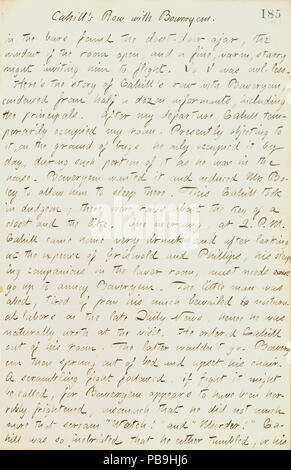 Cahill's Row with Bowryem.
185
in the bars, found the closet-door ajar, the
window of the room open, and a fine, warm, starry
night inviting him to flight. So
Here's the story of Cahill's row with Bowryem,
condensed from half a dozen informants, including
the principals. After my departure, Cahill tem-
porarily occupied my room. Presently objecting to
it, on the ground of bugs, he only occupied it by
day, during such portion of it as he was in the
house. Bowryem wanted it and induced Mrs. Bo-
ley to allow him to sleep there. This Cahill took
in dudgeon; they had rows about the key of a
closet and the like. One morning, at 2 A.M.
Cahill came home very drunk, and after larking
at the expense of Griswold and Phillips, his sleep-
ing companions in the lower room, must needs
go up to annoy Bowryem. The little man was
abed, tired from his much bewailed to natural
labors on the late Daily News, hence he was
naturally wroth at the visit. He ordered Cahill
out of his room. The latter wouldn't go. Bowry-
em then sprung out of bed and upset his chair.
A scrambling fight followed, if fight it might
be called, for Bowryem appears to have been hor-
ribly frightened, insomuch that he did not much
more than scream "Watch!" and "Murder!" Ca-
hill was so inebriated that he either tumbled, or his
alamy
alamy stock photo
PB9HJ6
www.alamy.com